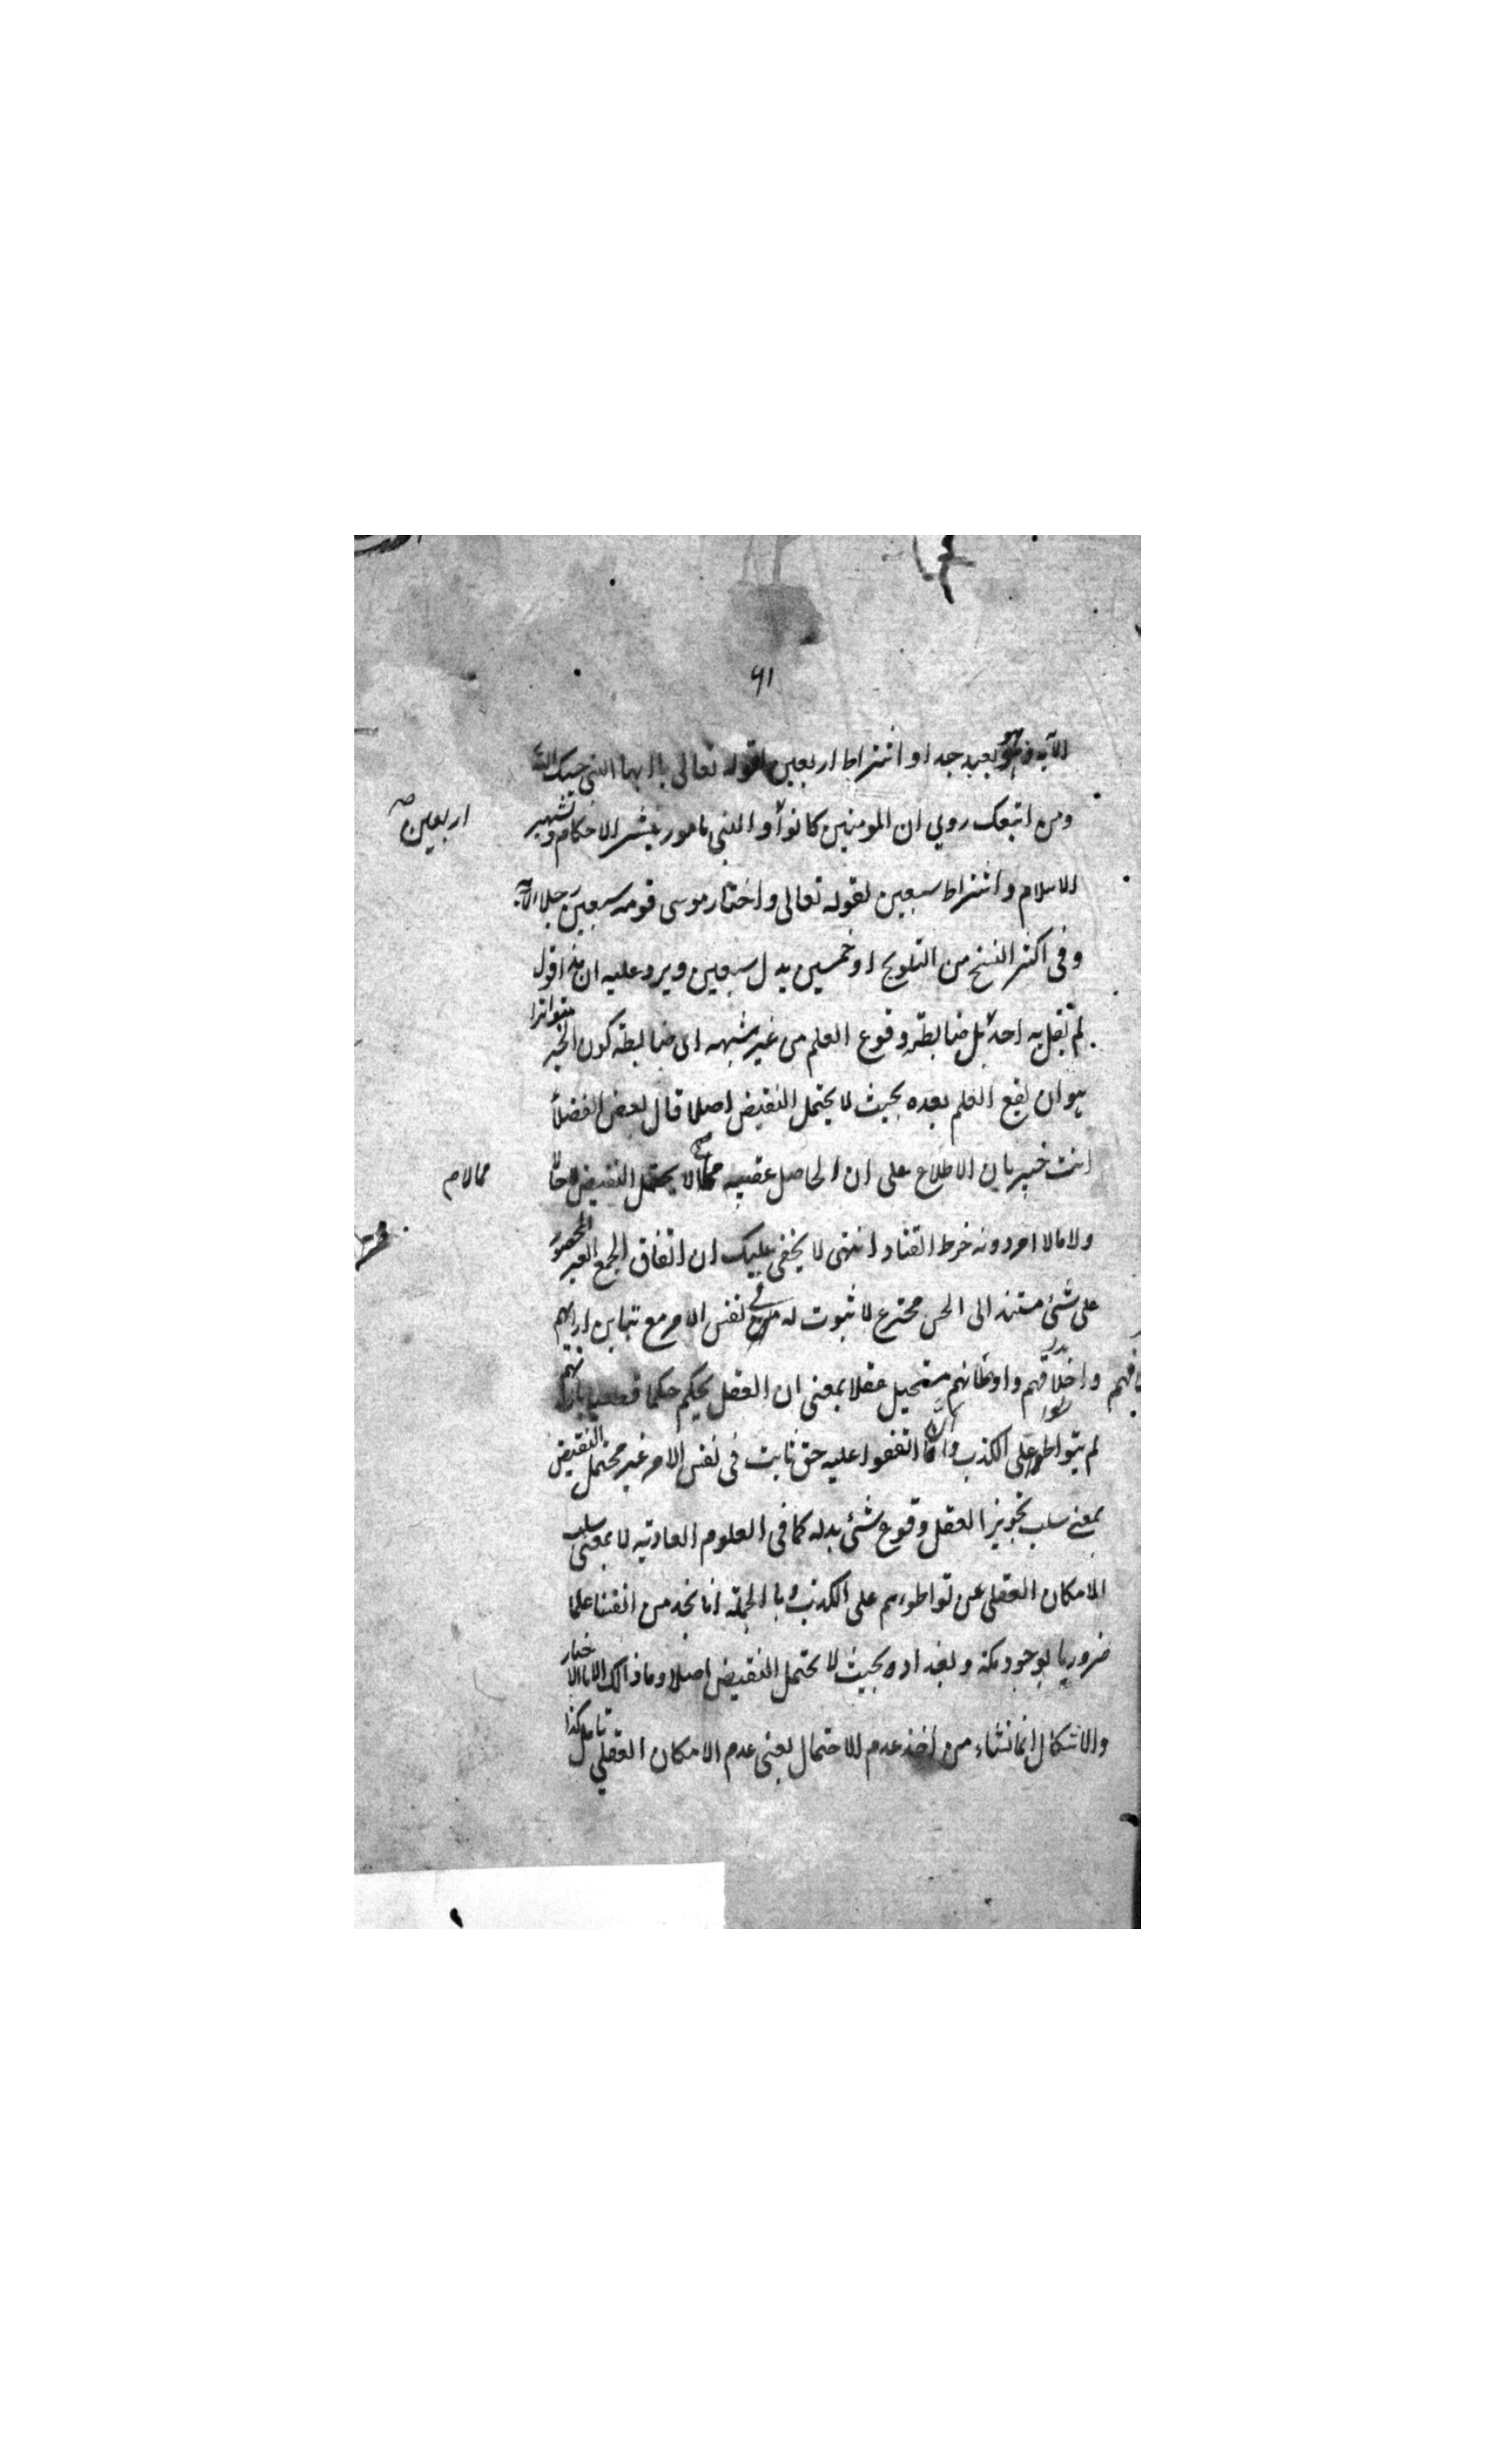 ٩١
الآية فهو بعيد جدا و اشتراط اربعين لقوله تعالى يا ايها النبي حسبك الله
ومن اتبعك روي ان المومنين كانوا والنبي مامور بنشر الاحكام و تشهير
اربعين صح
الاسلام و اشتراط سبعين لقوله تعالى واختار موسى قومه سبعين رجلا الآية
وفى اكثر النسخ من التلويح او خمسين بدل سبعين ويرد عليه ان هذا قول
لم يقل به احد بل ضابطه وقوع العلم من غير شبهه اى ضابطة كون الخبر متواترا
هو ان يقع العلم بعده بحيث لا يحتمل النقيض اصلا قال بعض الفضلاء
انت خبير بان الاطلاع على ان الحاصل عقيبه مما لا يحتمل النقيض لا حالا
مما لام
ولا مالا امر دونه خرط القتاد انتهى لا يخفى عليك ان اتفاق الجمع الغير المحصور
على شئ مستند الى الحس مخترع لا ثبوت له في نفس الامر مع تباين ارائهم
واخلاقهم واوطانهم مستحيل عقلا بمعنى ان العقل يحكم حكما قطعيا بانهم
لم يتواطوا على الكذب وان ما اتفقوا عليه حق ثابت فى نفس الامر غير محتمل النقيض
بمعنے سلب تجويز العقل وقوع شئ بدله كما فى العلوم العادية لا بمعنى سلب
الامكان العقلى عن تواطوهم على الكذب و با الجملة انا نجد من انفسنا علما
ضروريا بوجود مكة و بغداد بحيث لا يحتمل النقيض اصلا وما ذالك الا بالاخبار
والاشكال انما نشاء من اخذ عدم الاحتمال بمعنى عدم الامكان العقلي تامل كذا